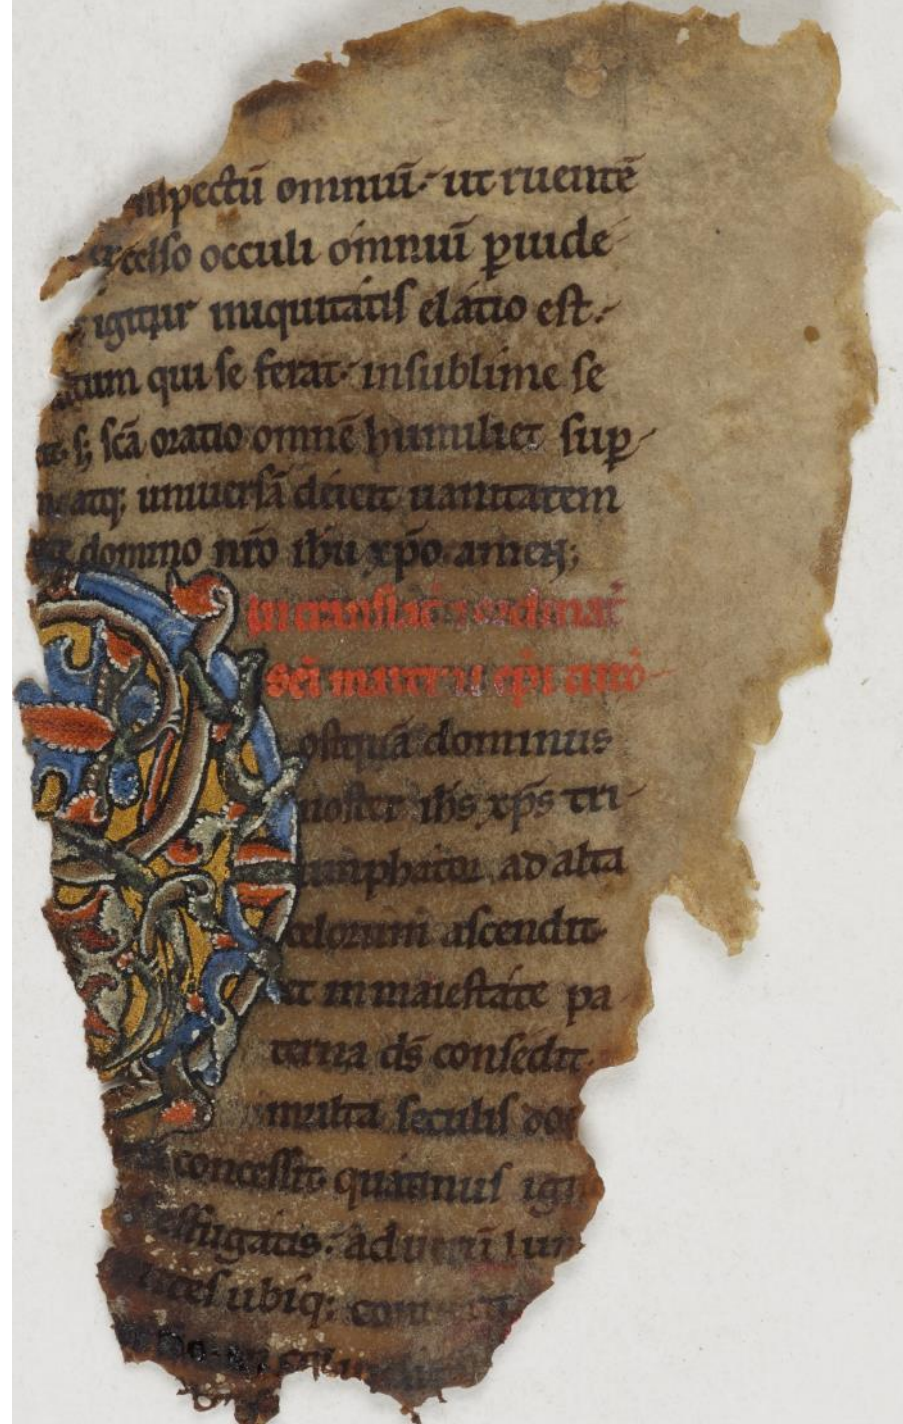 nspectū omniū. ut ruentē
excelso occuli omniū ꝑuide
igitur iniquitatis elatio est.
qui se ferat. insublime se
s; scā oratio omnē humiliet suꝑ
atq; uniuersā deicit uanitatem
domino nr̄o ih̄u xp̄o amen;
In translat ordinat
sc̄i martini ep̄i
ostquā dominus
noster ih̄s xp̄s tri
umphator ad alta
celorum ascendit.
et in maiestate pa
terna ds̄ consedit.
multa seculis
concessit. quatinus
effugatis. ad uerū lum
ubiq;